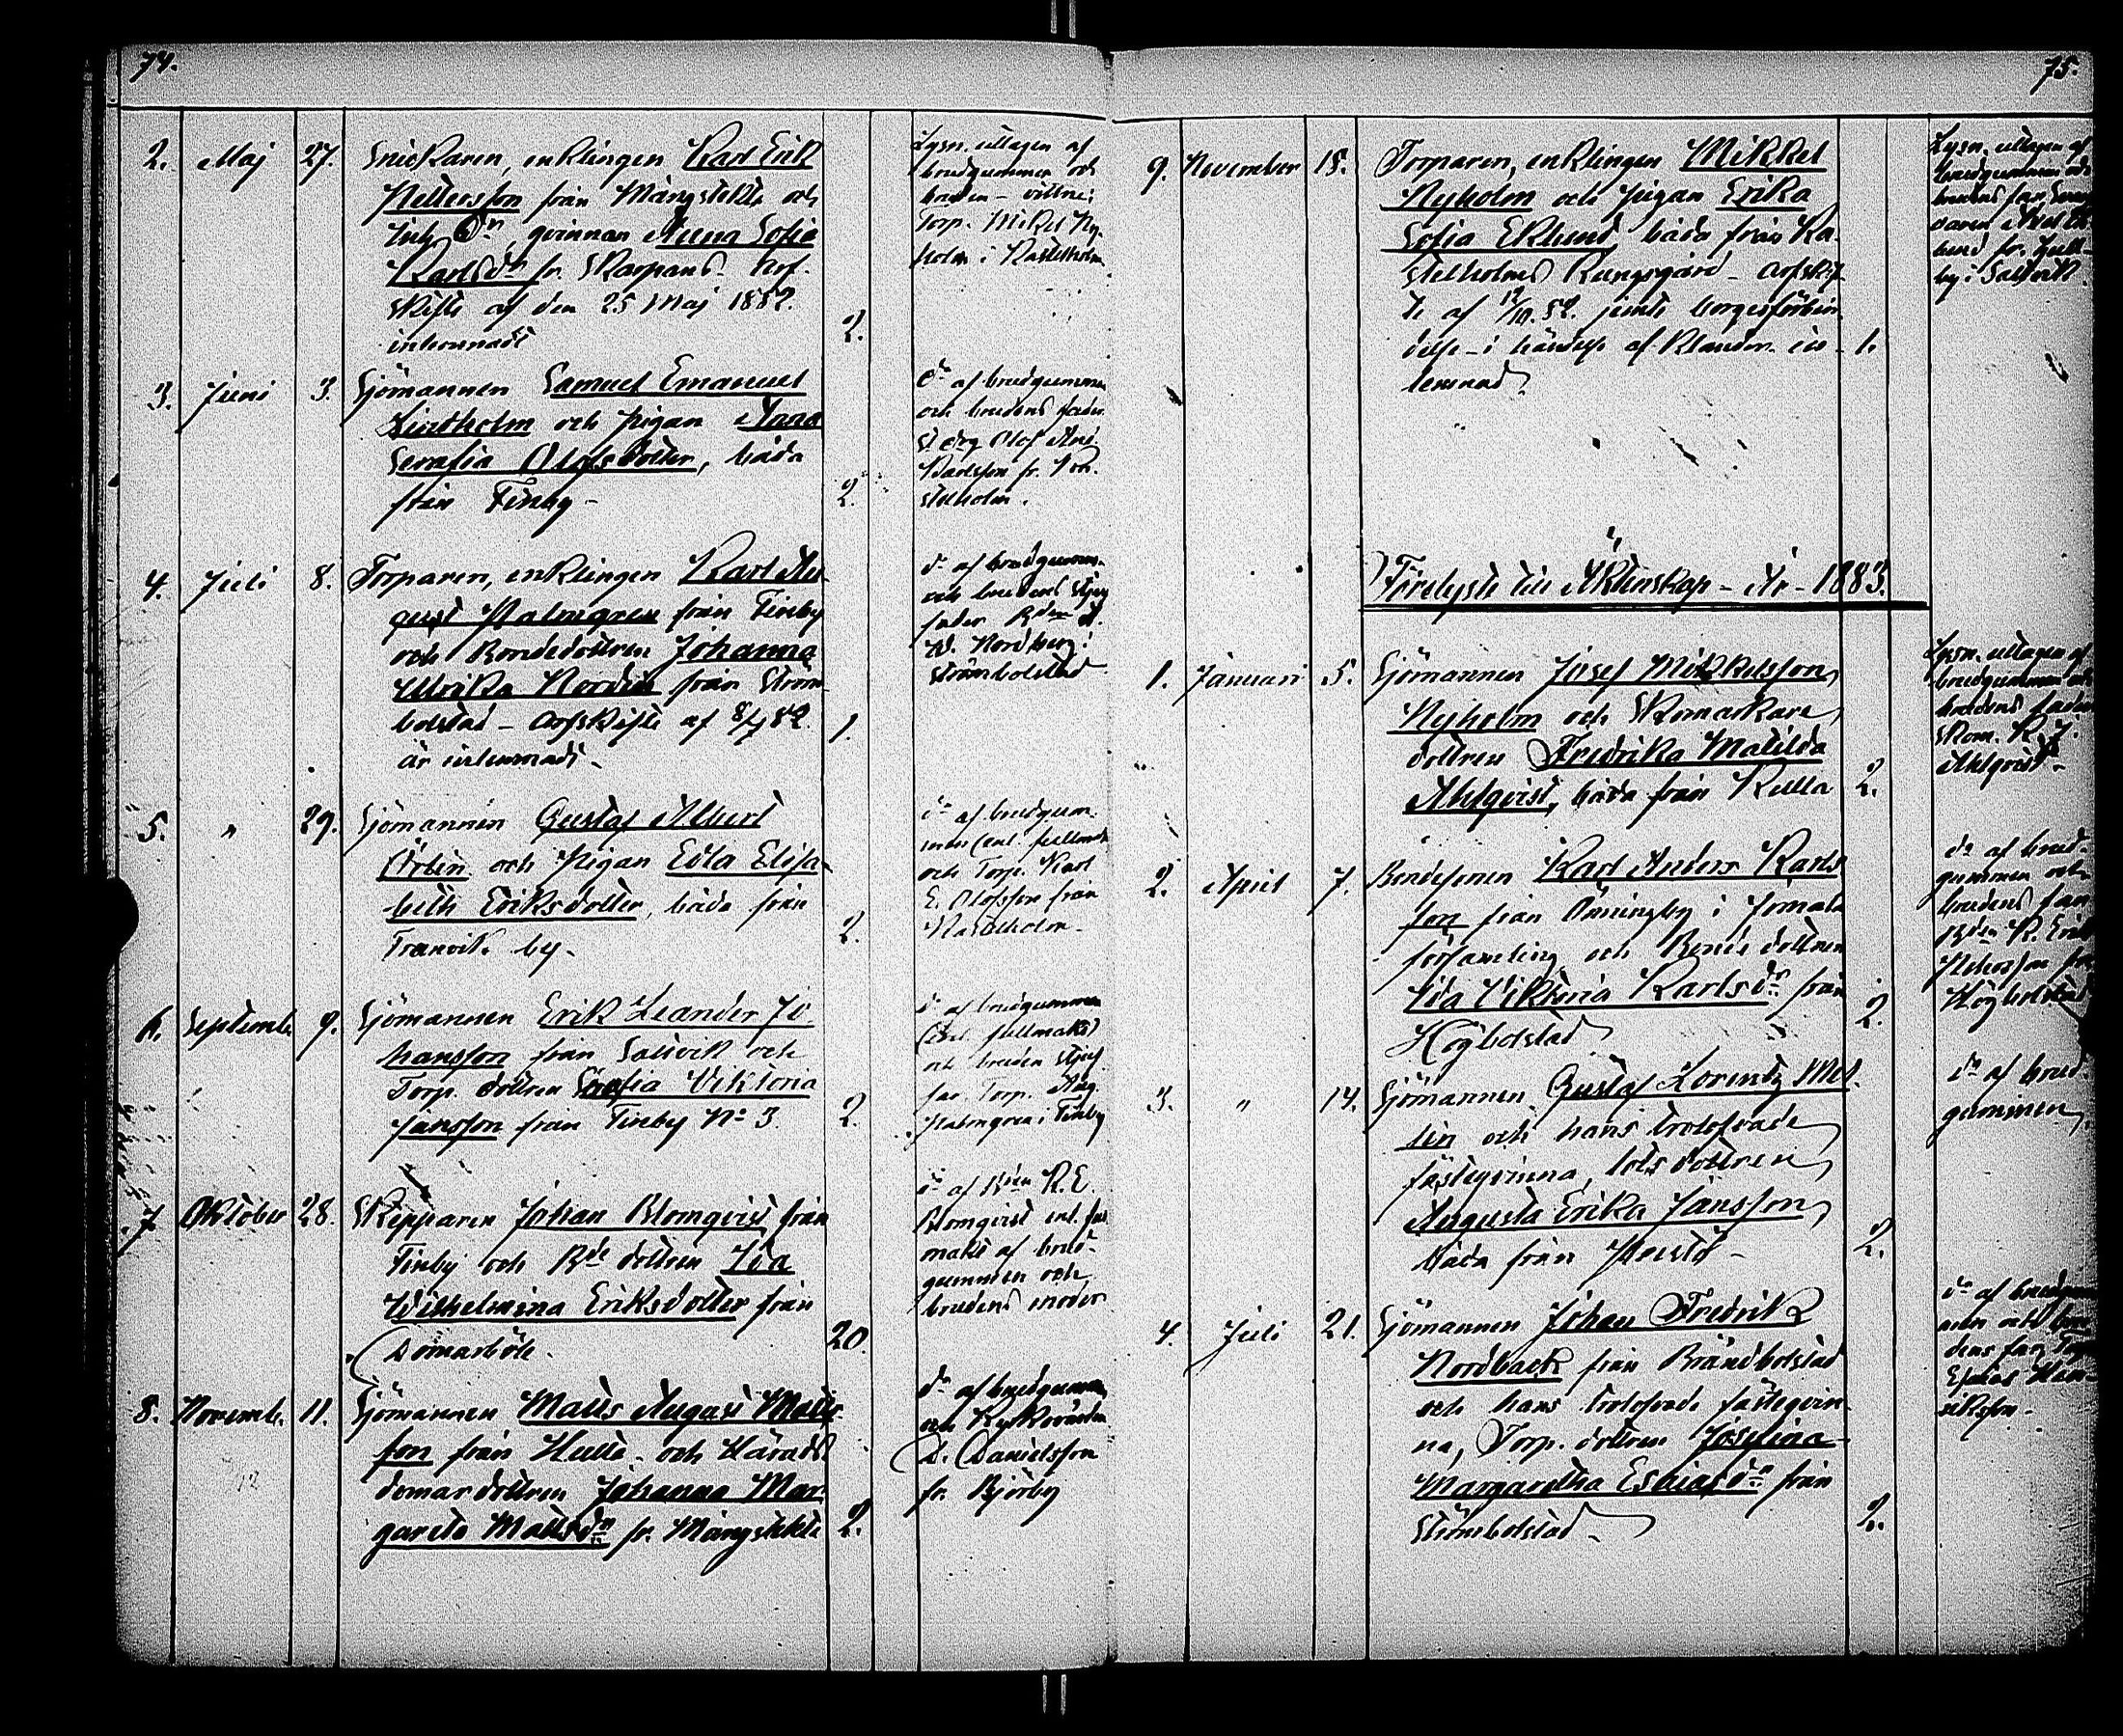 74.
2. Maj 27. Snickaren, enklingen Karl Erik
Pettersson från Mångstekta och
Inh. Dr, qvinnan Anna Sofia
Karlsdr fr. Skarpans. Arf-
skifte af den 25 Maj 1882.
inlemnadt 2.
Lysn. uttagen af
brudgummen och
bruden - vittne:
Torp. Mikel Ny-
holm i Kastelholm
3. Juni 3. Sjömannen Samuel Emanuel
Lindholm och pigan Anna
Serafia Olofsdotter, båda
från Finby - 2.
do af brudgummen
och brudens fader
Olof And.
Karlsson fr. Ka-
stelholm.
4. Juli 8. Torparen, enklingen Karl Au-
gust Palmgren från Finby
och Bondedottren Johanna
Ulrika Nordin från Ström-
bolstad - Arfskifte af 8/7 82.
är inlemnadt - 1.
do af brudgumm.
och brudens stjuf
fader Bden
Nordberg i
Strömbolstad
5. " 29. Sjömannen Gustaf Albert
Örlin och Pigan Edla Elisa-
beth Eriksdotter, båda från
Tranvik by - 2.
do af brudgum
men (enl. fullmakt
och Torp. Karl
E. Olofsson från
Kastelholm -
6. Septemb. 9. Sjömannen Erik Leander Jo-
hansson från Saltvik och
Torp. dottren Serafia Viktoria
Jansson från Finby No 3. 2.
do af brudgummen
(enl. fullmakt)
och bruden stjuf
far Torp. Aug.
Palmgren i Finby
7. Oktober 28. Skepparen Johan Blomqvist från
Finby och Bde dottren Ida
Wilhelmina Eriksdotter från
Domarböle. 20.
do af Bden K. E.
Blomqvist enl. full
makt af brud-
gummen och
brudens moder
8. Novemb. 11. Sjömannen Matts August Matts-
son från Hulta - och Härads
domar dottren Johanna Mar-
gareta Mattsdr fr. Mångstekta 2.
do af brudgumm.
och Kyrkovärden
D. Danielsson
fr. Björby
75.
9. November 15. Torparen, enklingen Mikkel
Nyholm och Pigan Erika
Sofia Eklund, båda från Ka-
stelholms Kungsgård - Arfskif-
te af 12/10. 82. jemte borgesförbin
delse - i händelse af klander - in- 1.
lemnad.
Lysn. uttagen af
brudgummen och
brudens far
Ek-
lund fr.
by i Saltvik.
Förelyste till Äktenskap - År - 1883.
1. Januari 5. Sjömannen Josef Mikkelsson
Nyholm och Skomakare
dottren Fredrika Matilda
Ahlqvist, båda från Kulla 2.
Lysn. uttagen af
brudgummen och
brudens fader
Skom. K. J.
Ahlqvist -
2. April 7. Bondesonen Karl Anders Karls
son från Önningby i Jomala
församling och Bonde dottren
Ida Viktoria Karlsdr från
Högbolstad 2.
do af brud-
gummen och
brudens far
Bden K. Erik
Högbolstad
3. " 14. Sjömannen Gustaf Lorentz Mel-
lin och hans trolofvade
fästeqvinna, lots dottren
Augusta Erika Jansson,
båda från Prestö - 2.
do af brud-
gummen.
4. Juli 21. Sjömannen Johan Fredrik
Nordback från Brändbolstad
och hans trolofvade fästeqvin-
na, Torp. dottren Josefina
Margaretha Esaiasdr från
Strömbolstad - 2.
do af brudgum
men och bru
dens far, Torp.
Esaias Hen-
riksson -